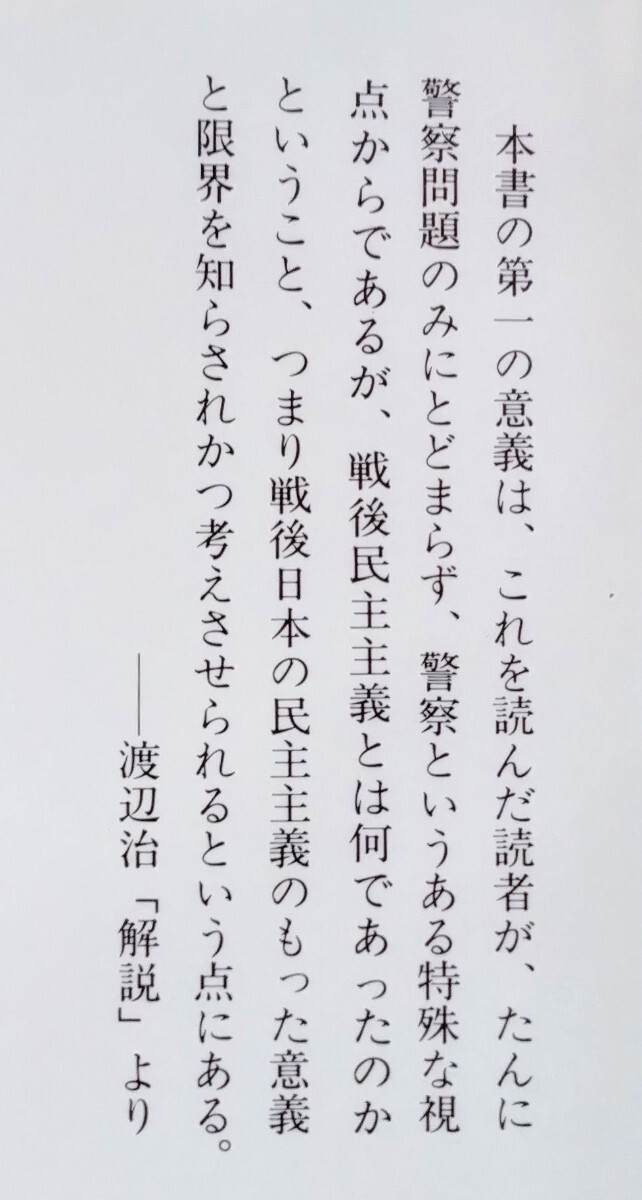 本書の第一の意義は、これを読んだ読者が、たんに
警察問題のみにとどまらず、警察というある特殊な視
点からであるが、戦後民主主義とは何であったのか
ということ、つまり戦後日本の民主主義のもった意義
と限界を知らされかつ考えさせられるという点にある。
――渡辺治「解説」より